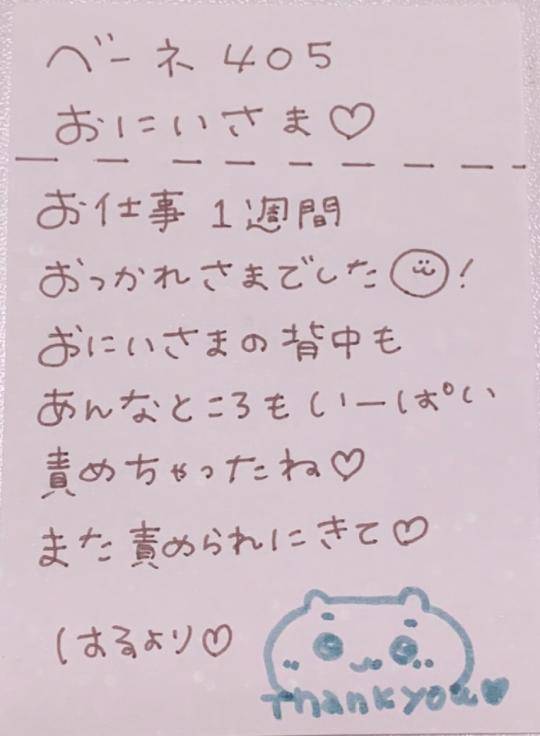 ベーネ 405
おにいさま♡
お仕事 1週間
おつかれさまでした!
おにいさまの背中も
あんなところもいーぱい
責めちゃったね♡
また責められにきて♡
はるより♡
Thank you♥